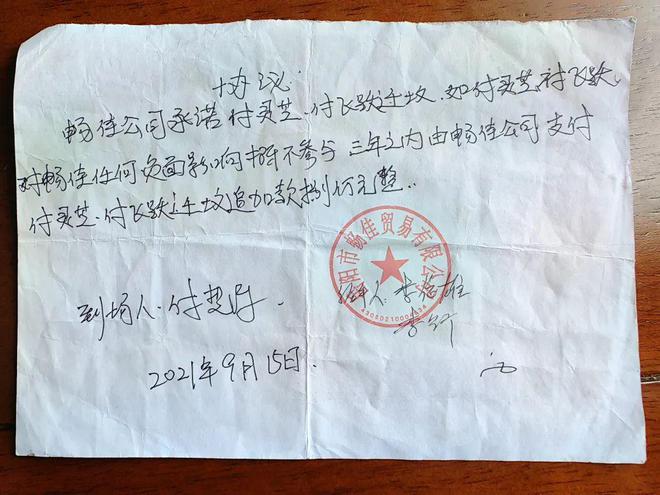 协议
畅佳公司承诺付灵芝、付飞跃迁坟、如付灵芝、付飞跃
对畅佳任何负面影响概不参与 三年之内由畅佳公司支付
付灵芝、付飞跃迁坟追加款 捌仟元整
阳市畅佳贸易有限公
到场人：付
2021年9月15日